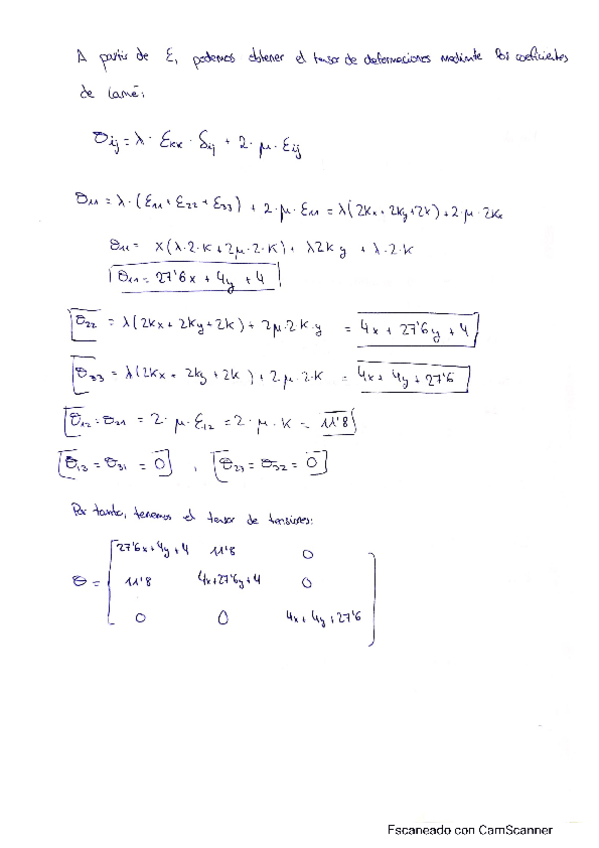 A partir de ε, podemos obtener el tensor de deformaciones mediante los coeficientes
de Lamé:
σij = λ · εkk · δij + 2 · μ · εij
σ11 = λ · (ε11 + ε22 + ε33) + 2 · μ · ε11 = λ(2Kx + 2Ky + 2K) + 2 · μ · 2Kx
σ11 = x(λ · 2 · K + 2μ · 2 · K) + λ2Ky + λ · 2 · K
σ11 = 27'6x + 4y + 4
σ22 = λ(2Kx + 2Ky + 2K) + 2μ · 2K · y = 4x + 27'6y + 4
σ33 = λ(2Kx + 2Ky + 2K) + 2 · μ · 2 · K = 4x + 4y + 27'6
σ12 = σ21 = 2 · μ · ε12 = 2 · μ · K = 11'8
σ13 = σ31 = 0 , σ23 = σ32 = 0
Por tanto, tenemos el tensor de tensiones:
27'6x + 4y + 4 11'8 0
σ = 11'8 4x + 27'6y + 4 0
0 0 4x + 4y + 27'6
Escaneado con CamScanner